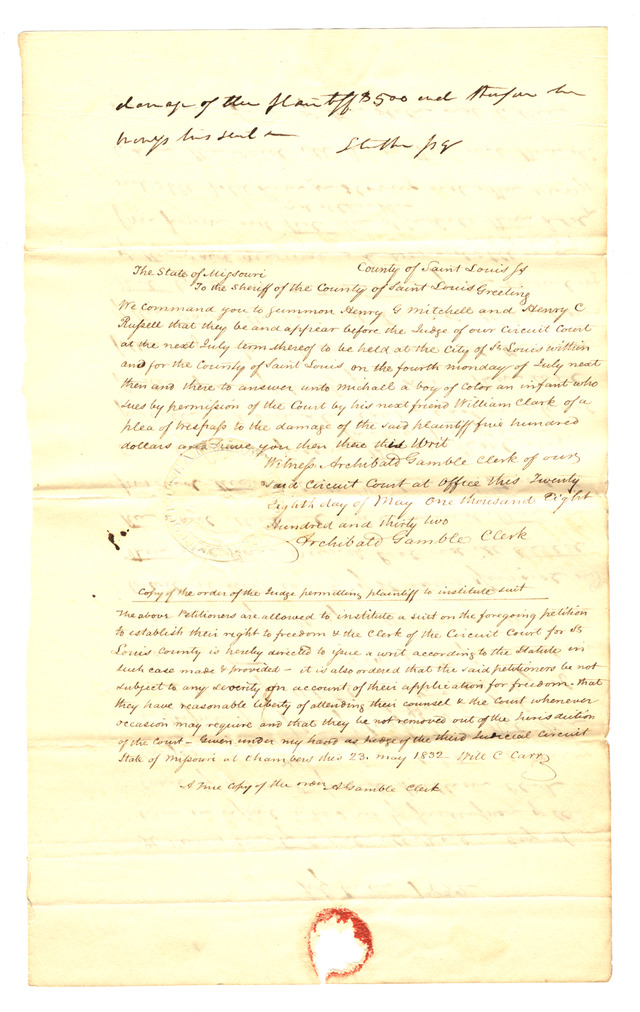 damage of the plaintiff $500 and therefore he
brings his suit &
Strother pq
The State of Missouri County of Saint Louis Sct
To the Sheriff of the County of Saint Louis Greeting
We command you to Summon Henry G Mitchell and Henry C
Russell that they be and appear before the Judge of our Circuit Court
at the next July term thereof to be held at the City of St Louis within
and for the County of Saint Louis on the fourth monday of July next
then and there to answer unto Michall a boy of Color an infant who
sues by permission of the Court by his next friend William Clark of a
plea of trespass to the damage of the said plaintiff five hundred
dollars and have you then there this Writ
Witness Archibald Gamble Clerk of our
said Circuit Court at Office this Twenty
Eighth day of May One thousand Eight
Hundred and thirty two
Archibald Gamble Clerk
Copy of the order of the Judge permitting plaintiff to institute suit
The above Petitioners are allowed to institute a suit on the foregoing petition
to establish their right to freedom & the Clerk of the Circuit Court for St
Louis County is hereby directed to issue a writ according to the Statute in
such case made & provided – it is also ordered that the said petitioners be not
subject to any severity on account of their application for freedom – that
they have reasonable liberty of attending their counsel & the Court whenever
occasion may require and that they be not removed out of the Jurisdiction
of the Court – Given under my hand as Judge of the third Judicial Circuit
State of Missouri at Chambers this 23. may 1832 – Will C Carr
A True Copy of the order A Gamble Clerk